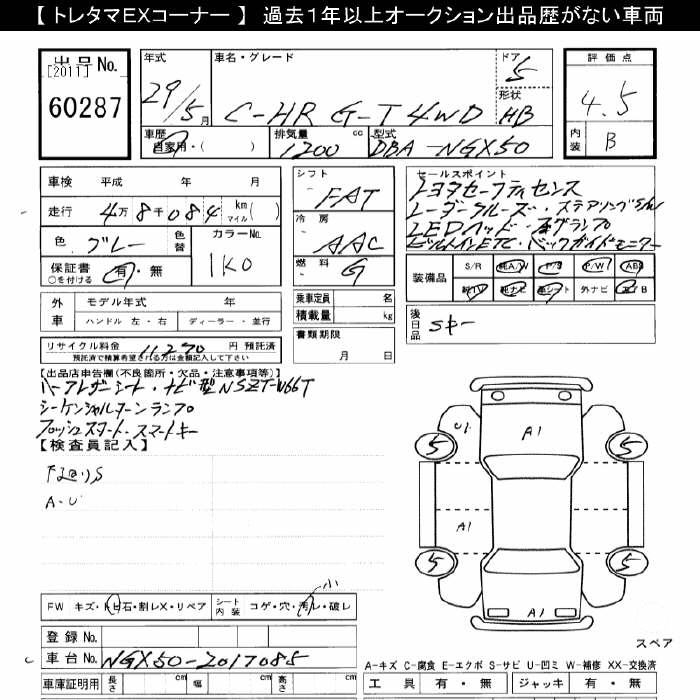 【 トレタマEXコーナー 】 過去1年以上オークション出品歴がない車両
出品 No.
[2011]
60287
年式
29/5月
車名・グレード
C-HR G-T 4WD
ドア
5
形状
HB
車歴
自家用・( )
排気量 cc
1200
型式
DBA-NGX50
評価点
4.5
内装
B
車検 平成 年 月
走行 4万8千084 km マイル( )
色 グレー 色替
カラーNo.
1K0
保証書 ○を付ける 有・無
外車 モデル年式 年
ハンドル 左・右 ディーラー・並行
シフト
FAT
冷房
AAC
燃料
G
乗車定員 名
積載量 kg
書類期限
月 日
セールスポイント
トヨタセーフティセンス
レーダークルーズ・ステアリング
LEDヘッド・フォグランプ
ビルトインETC・バックガイドモニター
装備品 S/R 純A/W P/S P/W ABS
純TV 純ナビ 革シート 外ナビ エアB
後日品 Sキー
リサイクル料金 11,270 円 預託済
預託済で精算希望される方は金額記入して下さい
【出品店申告欄(不良箇所・欠品・注意事項等)】
ハーフレザーシート・ナビ型NSZT-W66T
シーケンシャルターンランプ
プッシュスタート・スマートキー
【検査員記入】
下廻りS
A-U
U1
A1
5
5
A1
5
5
A1
スペア
FW キズ・トビ石・割レX・リペア シート内装 コゲ・穴・汚レ・破レ
小
登録 No.
車台 No. NGX50-2017085
車庫証明用 長さ cm 幅 cm 高さ cm
A-キズ C-腐食 E-エクボ S-サビ U-凹ミ W-補修 XX-交換済
工具 有・無 ジャッキ 有・無